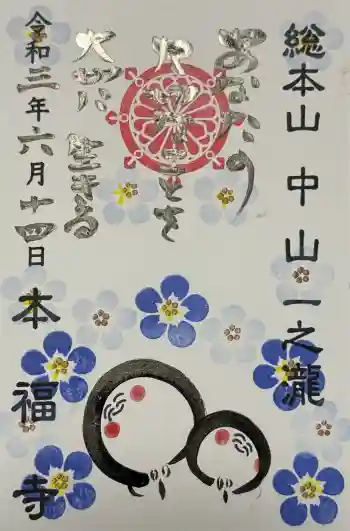 総本山 中山一之瀧
あなたの
大切に生きる
令和三年六月十四日
本福寺